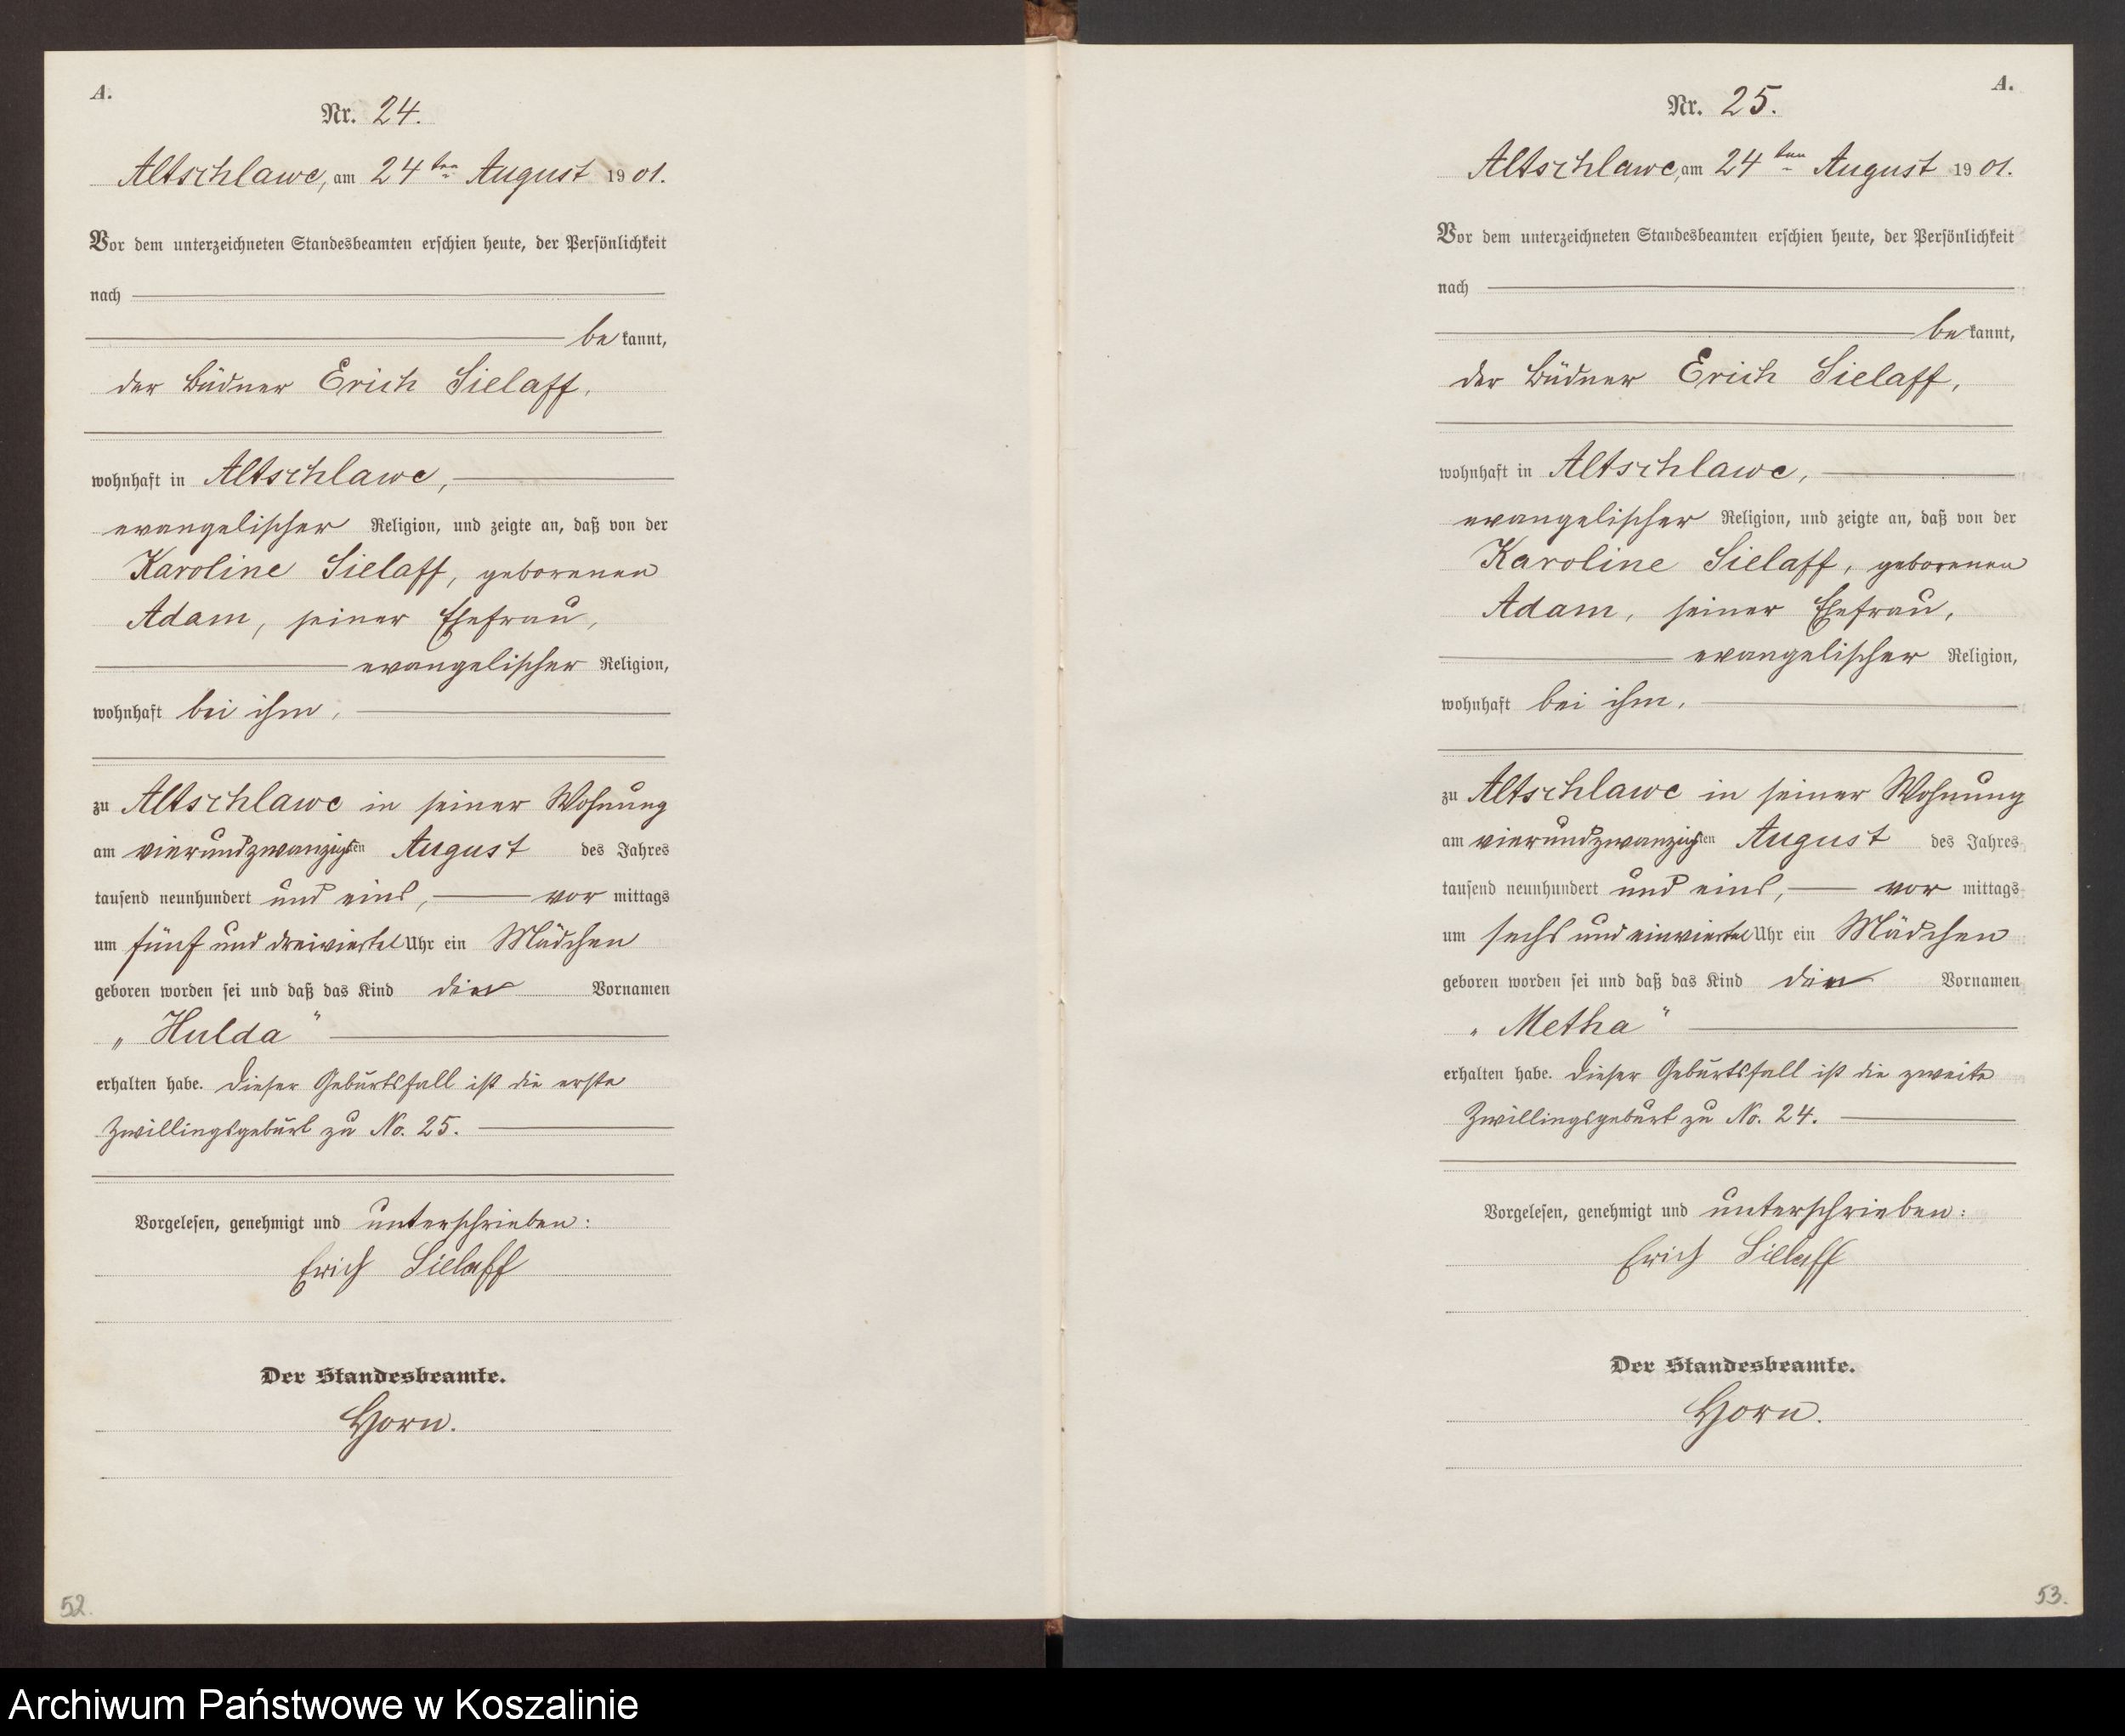 A.
Nr. 24.
Altschlawe, am 24ten August 1901.
Vor dem unterzeichneten Standesbeamten erschien heute, der Persönlichkeit
nach
be kannt,
der Büdner Erich Sielaff,
wohnhaft in Altschlawe,
evangelischer Religion, und zeigte an, daß von der
Karoline Sielaff, geborenen
Adam, seiner Ehefrau,
evangelischer Religion,
wohnhaft bei ihm,
zu Altschlawe in seiner Wohnung
am vierundzwanzigsten August des Jahres
tausend neunhundert und eins, vor mittags
um fünf und dreiviertel Uhr ein Mädchen
geboren worden sei und daß das Kind den Vornamen
„Hulda“
erhalten habe. Dieser Geburtsfall ist die erste
Zwillingsgeburt zu No. 25.
Vorgelesen, genehmigt und unterschrieben:
Erich Sielaff
Der Standesbeamte.
Horn.
52.
A.
Nr. 25.
Altschlawe, am 24ten August 1901.
Vor dem unterzeichneten Standesbeamten erschien heute, der Persönlichkeit
nach
be kannt,
der Büdner Erich Sielaff,
wohnhaft in Altschlawe,
evangelischer Religion, und zeigte an, daß von der
Karoline Sielaff, geborenen
Adam, seiner Ehefrau,
evangelischer Religion,
wohnhaft bei ihm,
zu Altschlawe in seiner Wohnung
am vierundzwanzigsten August des Jahres
tausend neunhundert und eins, vor mittags
um sechs und einviertel Uhr ein Mädchen
geboren worden sei und daß das Kind den Vornamen
„Metha“
erhalten habe. Dieser Geburtsfall ist die zweite
Zwillingsgeburt zu No. 24.
Vorgelesen, genehmigt und unterschrieben:
Erich Sielaff
Der Standesbeamte.
Horn.
53.
Archiwum Państwowe w Koszalinie